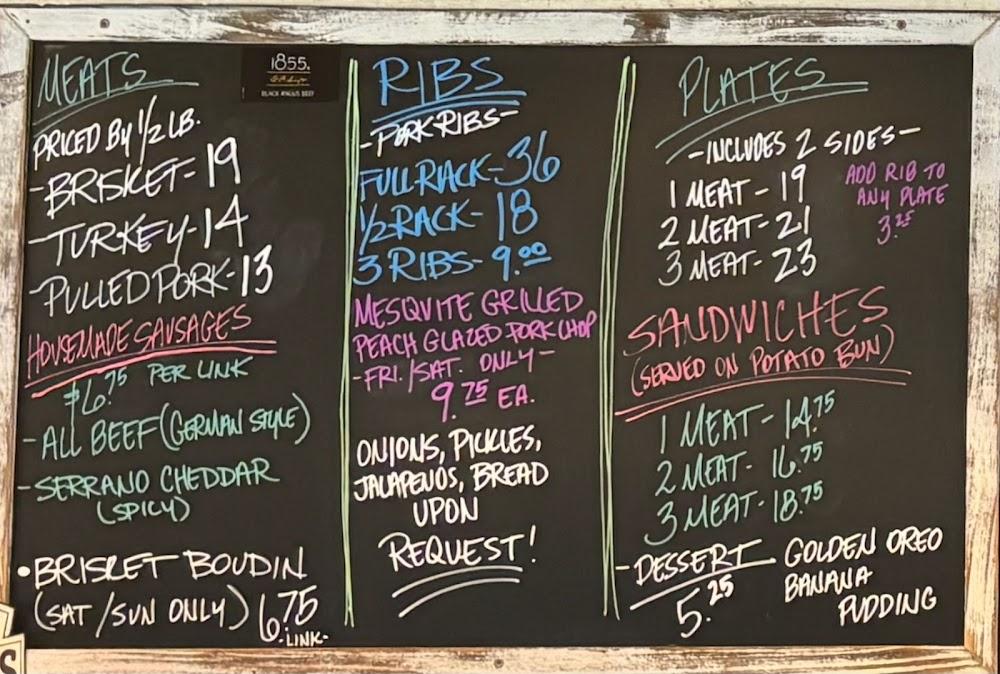 MEATS
1855
BLACK ANGUS BEEF
PRICED BY 1/2 LB.
-BRISKET-19
-TURKEY-14
-PULLED PORK-13
HOUSEMADE SAUSAGES
$6.75 PER LINK
-ALL BEEF (GERMAN STYLE)
-SERRANO CHEDDAR
(SPICY)
•BRISKET BOUDIN
(SAT/SUN ONLY) 6.75
-LINK-
RIBS
-PORK RIBS-
FULL RACK-36
1/2 RACK-18
3 RIBS-9.00
MESQUITE GRILLED
PEACH GLAZED PORK CHOP
-FRI./SAT. ONLY-
9.75 EA.
ONIONS, PICKLES,
JALAPENOS, BREAD
UPON
REQUEST!
PLATES
-INCLUDES 2 SIDES-
1 MEAT-19
2 MEAT-21
3 MEAT-23
ADD RIB TO
ANY PLATE
3.25
SANDWICHES
(SERVED ON POTATO BUN)
1 MEAT-14.75
2 MEAT-16.75
3 MEAT-18.75
-DESSERT
5.25
GOLDEN OREO
BANANA
PUDDING
S